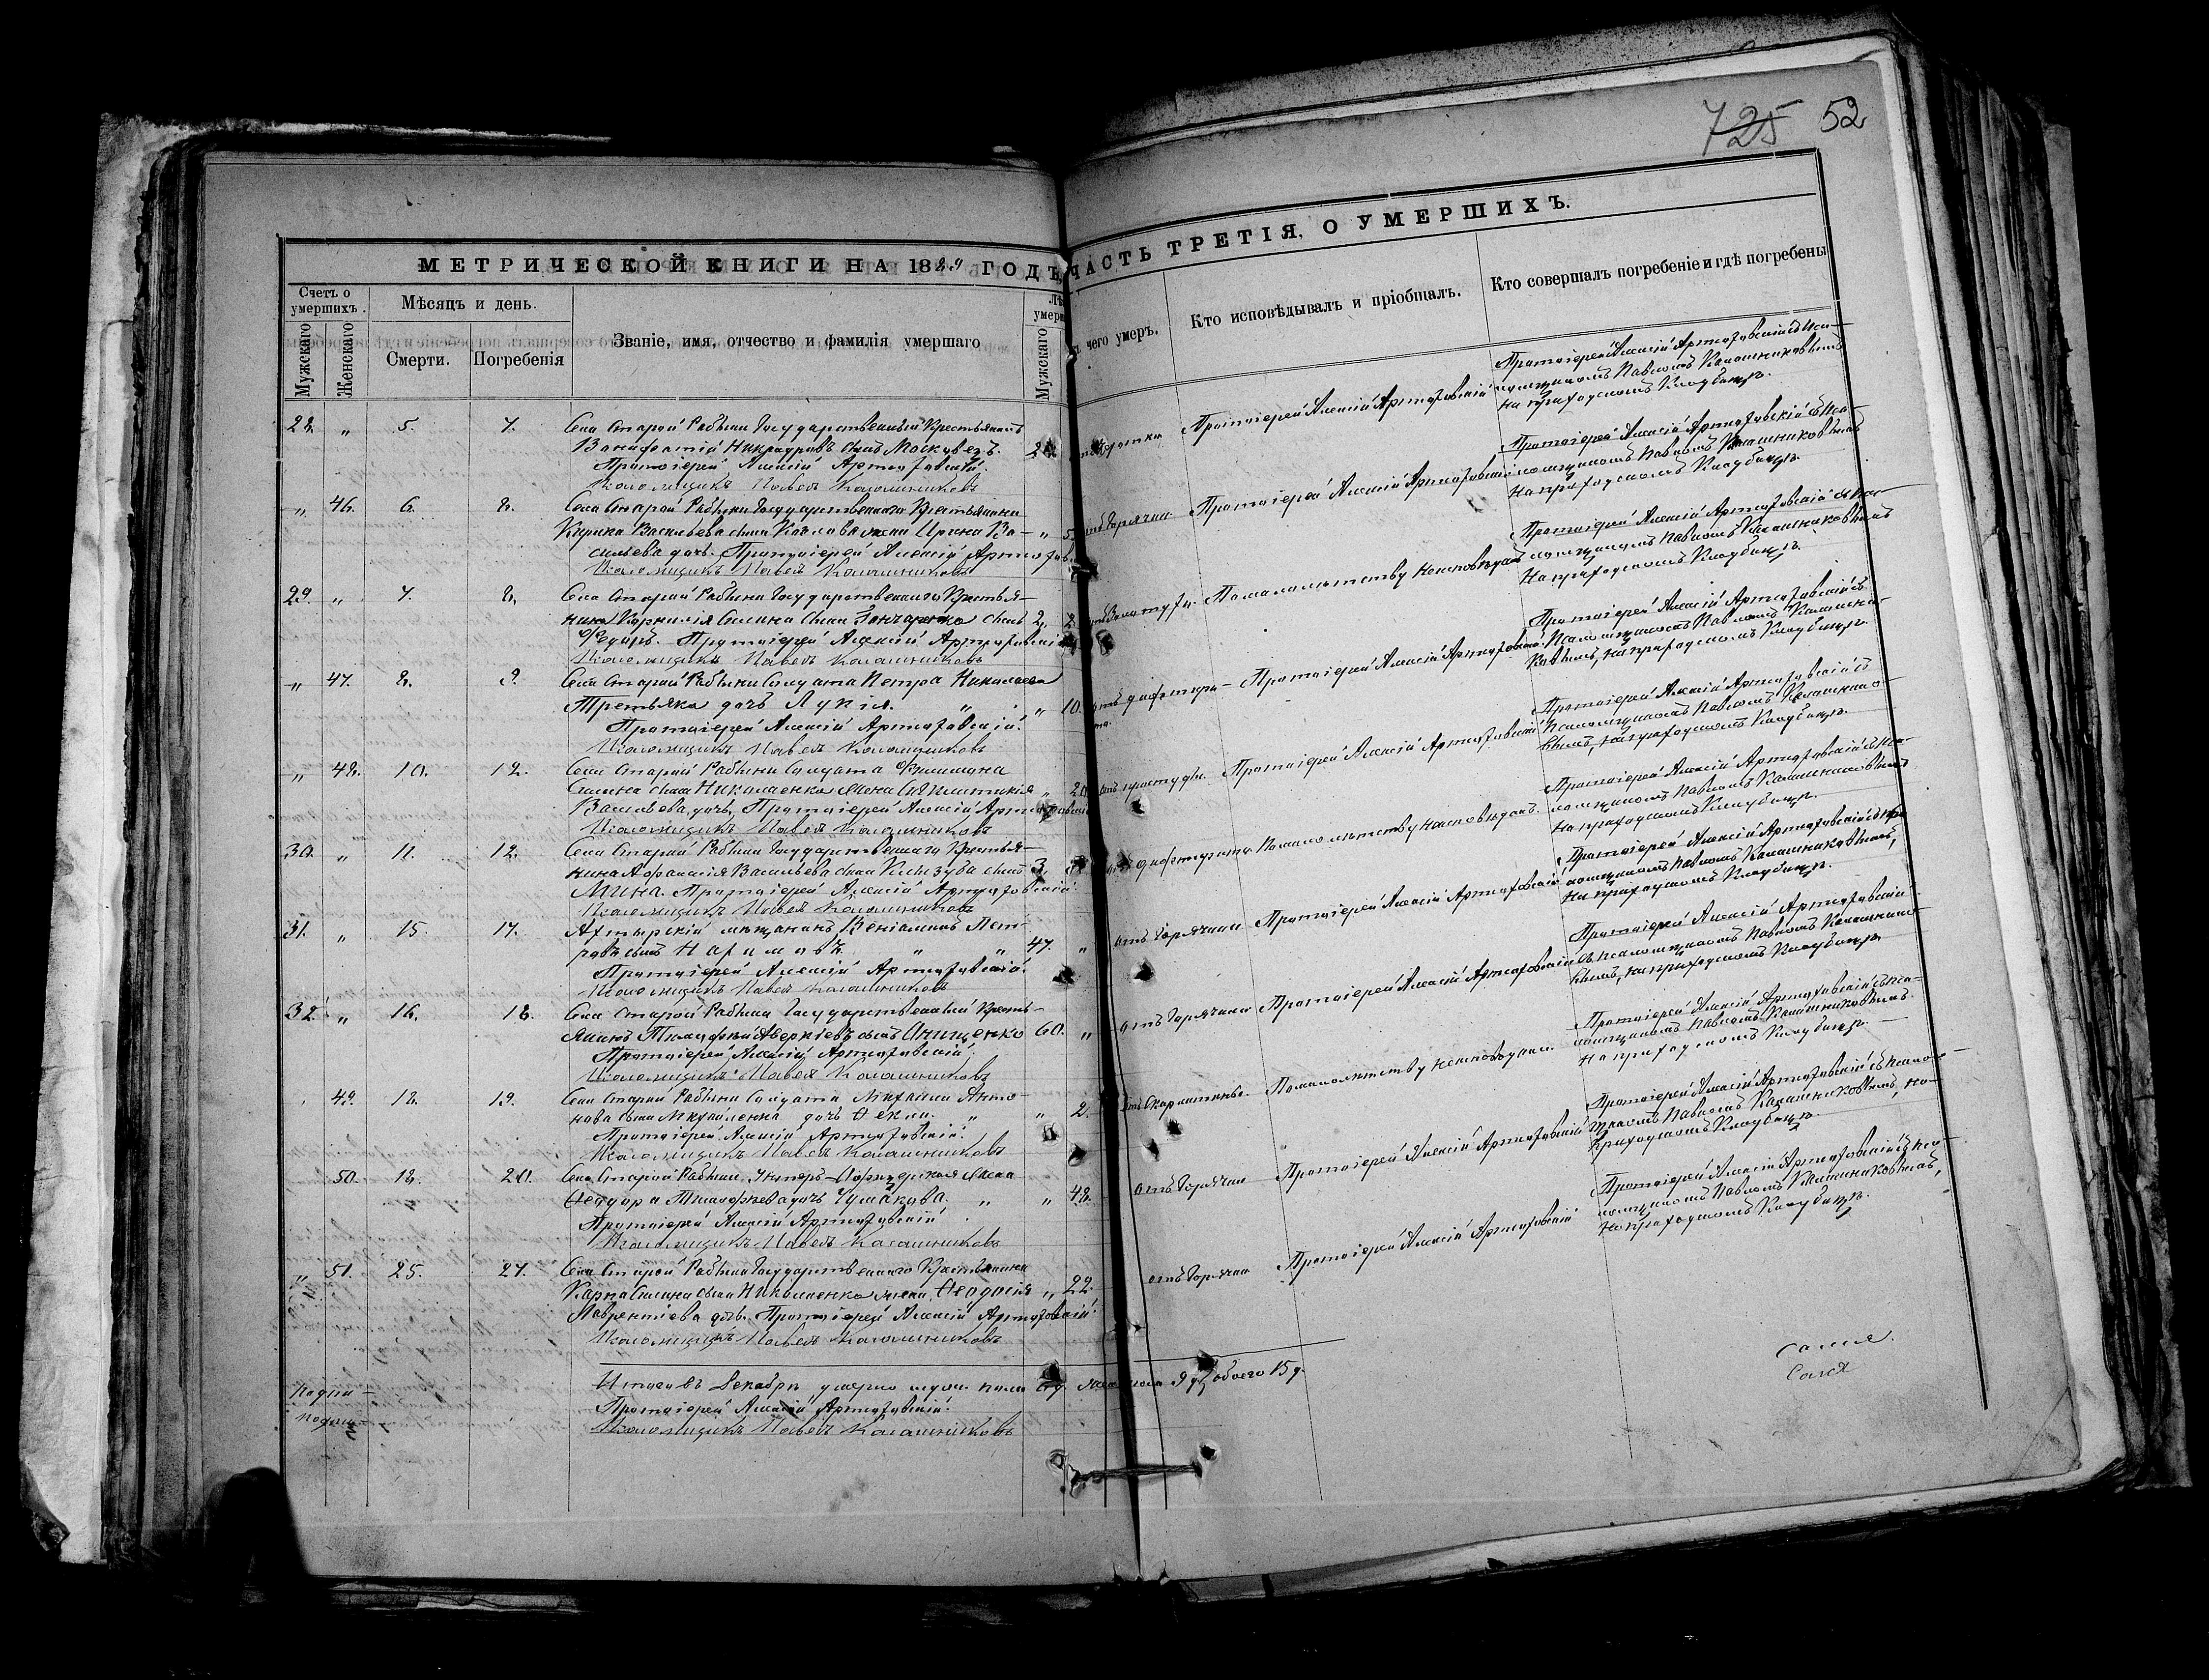 725 52
МЕТРИЧЕСКОЙ КНИГИ НА 1889 ГОДЪ,
ЧАСТЬ ТРЕТІЯ, О УМЕРШИХЪ.
Счетъ о умершихъ.
Мужскаго
Женскаго
Мѣсяцъ и день.
Смерти.
Погребенія
Званіе, имя, отчество и фамилія умершаго
Мужскаго
чего умеръ.
Кто исповѣдывалъ и пріобщалъ.
Кто совершалъ погребеніе и гдѣ погребены
28. „ 5. 7. Села Старой Рябины Государственный Крестьянинъ
сынъ Московецъ.
Протоіерей Алексій Артюховскій.
Псаломщикъ Павелъ Калашниковъ
Протоіерей Алексій Артюховскій
Протоіерей Алексій Артюховскій съ Пса-
ломщикомъ Павломъ Калашниковымъ
На приходскомъ Кладбищѣ.
„ 46. 6. 8. Села Старой Рябины Государственнаго Крестьянина
Кирика Васильева сына Козлова жена Ирина Ва-
сильева дочь. Протоіерей Алексій Артюхов
Псаломщикъ Павелъ Калашниковъ
отъ Горячки
Протоіерей Алексій Артюховскій
Протоіерей Алексій Артюховскій съ Пса-
ломщикомъ Павломъ Калашниковымъ
На приходскомъ Кладбищѣ.
29. „ 7. 8. Села Старой Рябины Государственнаго Крестья-
нина Корнилія Силина сына Гончаренко сынъ 2.
Ѳедоръ. Протоіерей Алексій Артюховскій
Псаломщикъ Павелъ Калашниковъ
По малолѣтству неисповѣданъ
Протоіерей Алексій Артюховскій съ Пса-
ломщикомъ Павломъ Калашниковымъ
На приходскомъ Кладбищѣ.
„ 47. 8. 9. Села Старой Рябины Солдата Петра Николаева
Третьяка дочь Лукія. „ 10.
Протоіерей Алексій Артюховскій.
Псаломщикъ Павелъ Калашниковъ
отъ дифтери-
та.
Протоіерей Алексій Артюховскій
Протоіерей Алексій Артюховскій съ
Псаломщикомъ Павломъ Калашни-
ковымъ, на приходскомъ Кладбищѣ.
„ 48. 10. 12. Села Старой Рябины Солдата Филимона
Силина сына Николаенко жена
Васильева дочь, Протоіерей Алексій Артюховскій
Псаломщикъ Павелъ Калашниковъ
отъ простуды.
Протоіерей Алексій Артюховскій
Протоіерей Алексій Артюховскій съ
Псаломщикомъ Павломъ Калашнико-
вымъ, на приходскомъ Кладбищѣ.
30. „ 11. 12. Села Старой Рябины Государственнаго Крестья-
нина Афанасія Васильева сына сынъ 3.
Мина. Протоіерей Алексій Артюховскій.
Псаломщикъ Павелъ Калашниковъ
отъ дифтерита
По малолѣтству неисповѣданъ.
Протоіерей Алексій Артюховскій съ Пса-
ломщикомъ Павломъ Калашниковымъ
На приходскомъ Кладбищѣ.
31. „ 15. 17. Ахтырскій мѣщанинъ Веніаминъ Пет-
ровъ сынъ Наримовъ. „ „ 47. „
Протоіерей Алексій Артюховскій.
Псаломщикъ Павелъ Калашниковъ
отъ Горячки
Протоіерей Алексій Артюховскій
Протоіерей Алексій Артюховскій съ Пса-
ломщикомъ Павломъ Калашниковымъ,
На приходскомъ Кладбищѣ.
32. „ 16. 18. Села Старой Рябины Государственный Кресть-
янинъ Тимофей Аверкіевъ сынъ Онищенко 60. „
Протоіерей Алексій Артюховскій.
Псаломщикъ Павелъ Калашниковъ
отъ Горячки
Протоіерей Алексій Артюховскій
Протоіерей Алексій Артюховскій
съ псаломщикомъ Павломъ Калашнико-
вымъ, на приходскомъ Кладбищѣ.
49. 18. 19. Села Старой Рябины Солдата Михаила Анто-
нова сына Михайленка дочь Ѳекла. „ „ 2.
Протоіерей Алексій Артюховскій.
Псаломщикъ Павелъ Калашниковъ
отъ Скарлатины.
По малолѣтству неисповѣдана.
Протоіерей Алексій Артюховскій съ Пса-
ломщикомъ Павломъ Калашниковымъ.
На приходскомъ Кладбищѣ.
50. 18. 20. Села Старой Рябины, Унтеръ-Офицерская жена
Ѳеодора Тимофѣева дочь Чумакова. „ „ 48.
Протоіерей Алексій Артюховскій
Псаломщикъ Павелъ Калашниковъ
отъ Горячки
Протоіерей Алексій Артюховскій
Протоіерей Алексій Артюховскій съ Псалом-
щикомъ Павломъ Калашниковымъ, на
приходскомъ Кладбищѣ.
„ 51. 25. 27. Села Старой Рябины Государственнаго Крестьянина
Карпа Силина сына Николаенко жена Ѳеодосія „ 22.
Лаврентіева дочь. Протоіерей Алексій Артюховскій.
Псаломщикъ Павелъ Калашниковъ
отъ Горячки
Протоіерей Алексій Артюховскій
Протоіерей Алексій Артюховскій съ Пса-
ломщикомъ Павломъ Калашниковымъ,
На приходскомъ Кладбищѣ.
Итого въ Декабрѣ умерло муж. пола женскаго 9 обоего 15
Протоіерей Алексій Артюховскій.
Псаломщикъ Павелъ Калашниковъ